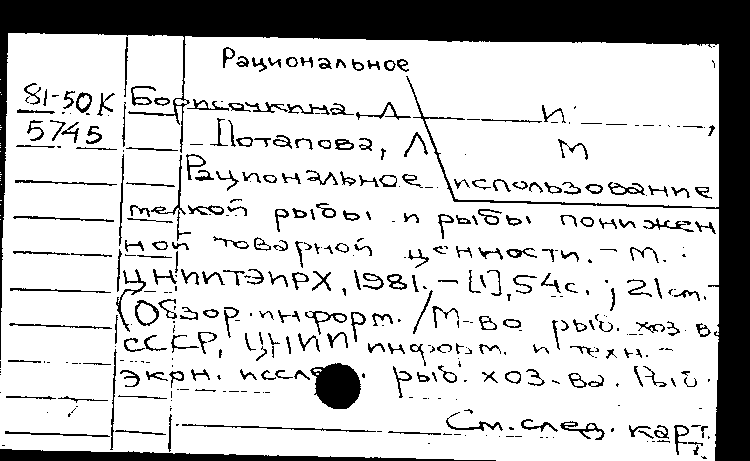 Рациональное
81-50К Борисочкина, Л И.
5745 Потапова, Л М
Рациональное использование
мелкой рыбы и рыбы понижен
ной товарной ценности. - М. :
ЦНИИТЭИРХ, 1981. - [1], 54с. ; 21см. -
(Обзор. информ. / М-во рыб. хоз-ва
СССР, ЦНИИ информ. и техн.-
экон. исслед. рыб. хоз-ва. Рыб.
См. след. карт.